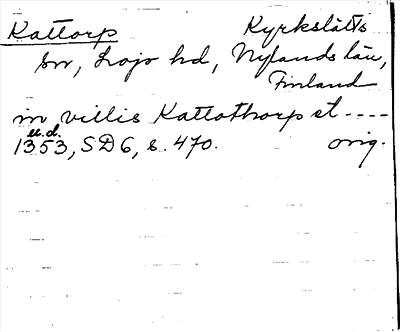 Kattorp Kyrkslätts
sn, Lojo hd, Nylands län,
Finland
in villis Kattothorp et ----
u.d.
1353, SD 6, s. 470. orig.